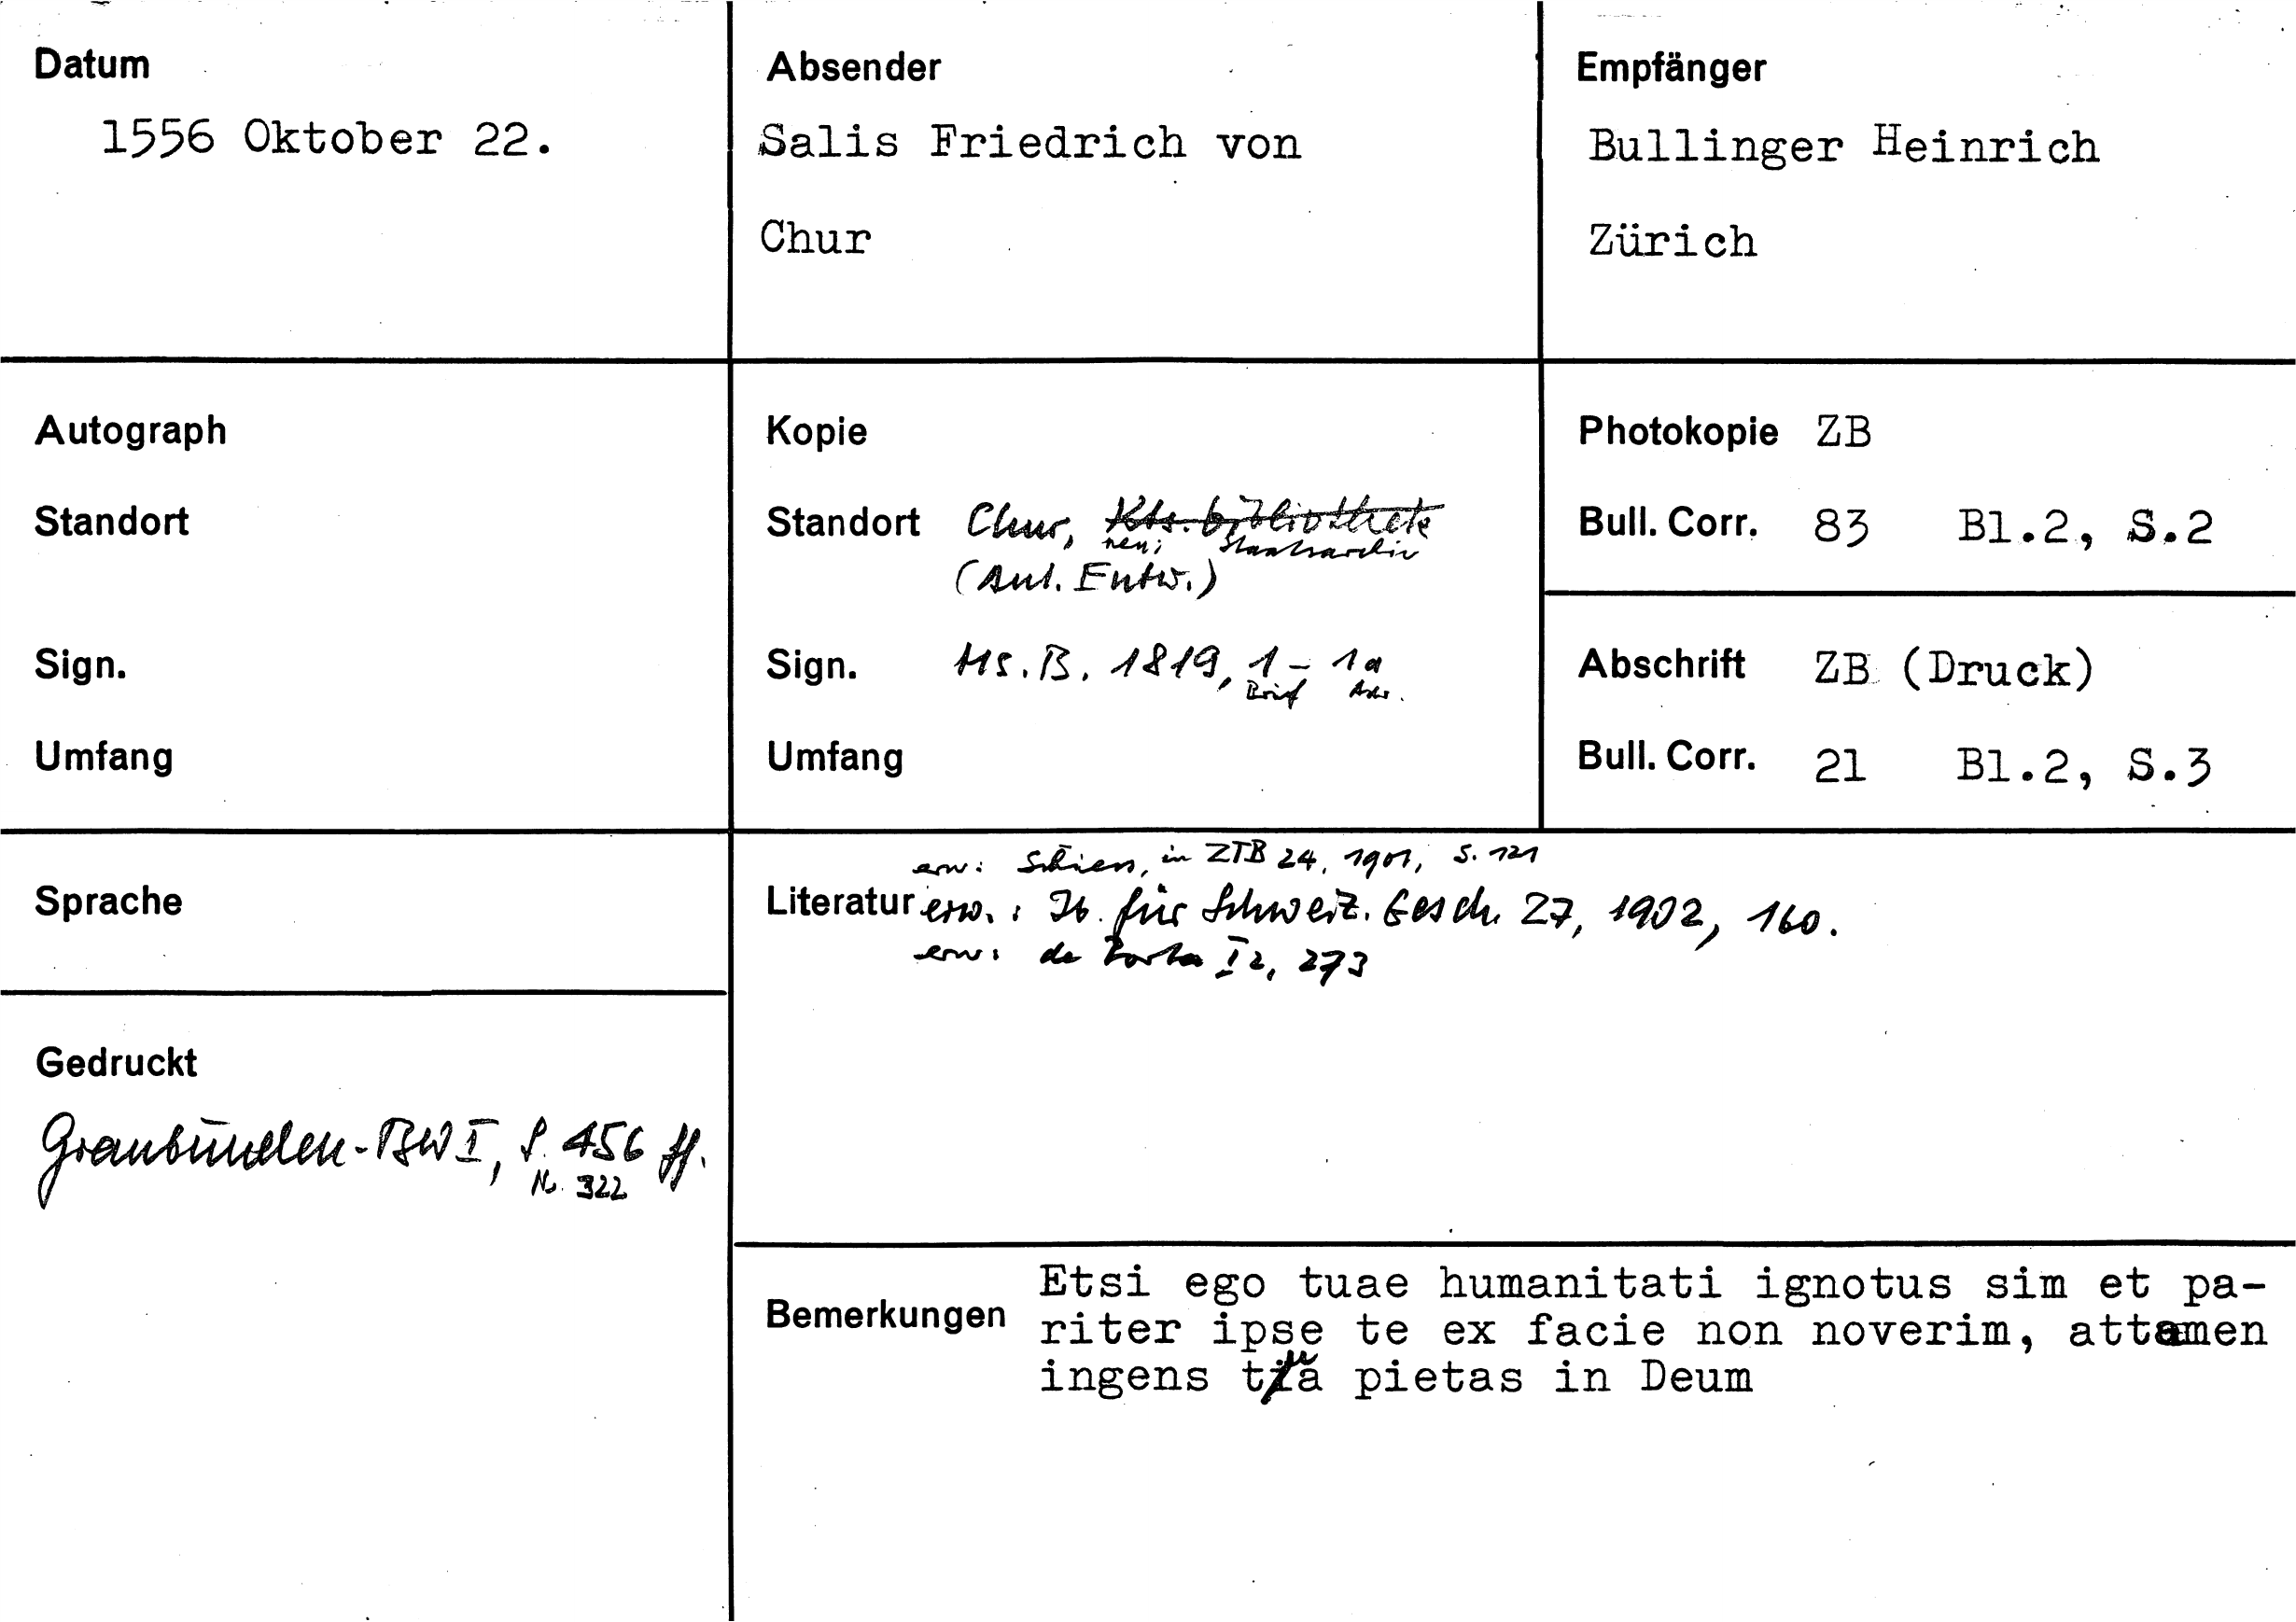 Datum
1556 Oktober 22.
Absender
Salis Friedrich von
Chur
Empfänger
Bullinger Heinrich
Zürich
Autograph
Standort
Sign.
Umfang
Kopie
Standort Chur, Kts.bibliothek
neu: Staatsarchiv
(Aut. Entw.)
Sign. Ms. B. 1819, 1 - 1a
Brief Adr.
Umfang
Photokopie ZB
Bull. Corr. 83 Bl.2, S.2
Abschrift ZB (Druck)
Bull. Corr. 21 Bl.2, S.3
Sprache
Gedruckt
Graubünden-BW I, S. 456 ff.
Nr. 322
erw: Schiess, in ZTB 24, 1901, S. 121
Literatur erw.: Jb. für Schweiz. Gesch. 27, 1902, 160.
erw: de Porta I 2, 273
Bemerkungen
Etsi ego tuae humanitati ignotus sim et pa-
riter ipse te ex facie non noverim, attamen
ingens tua pietas in Deum